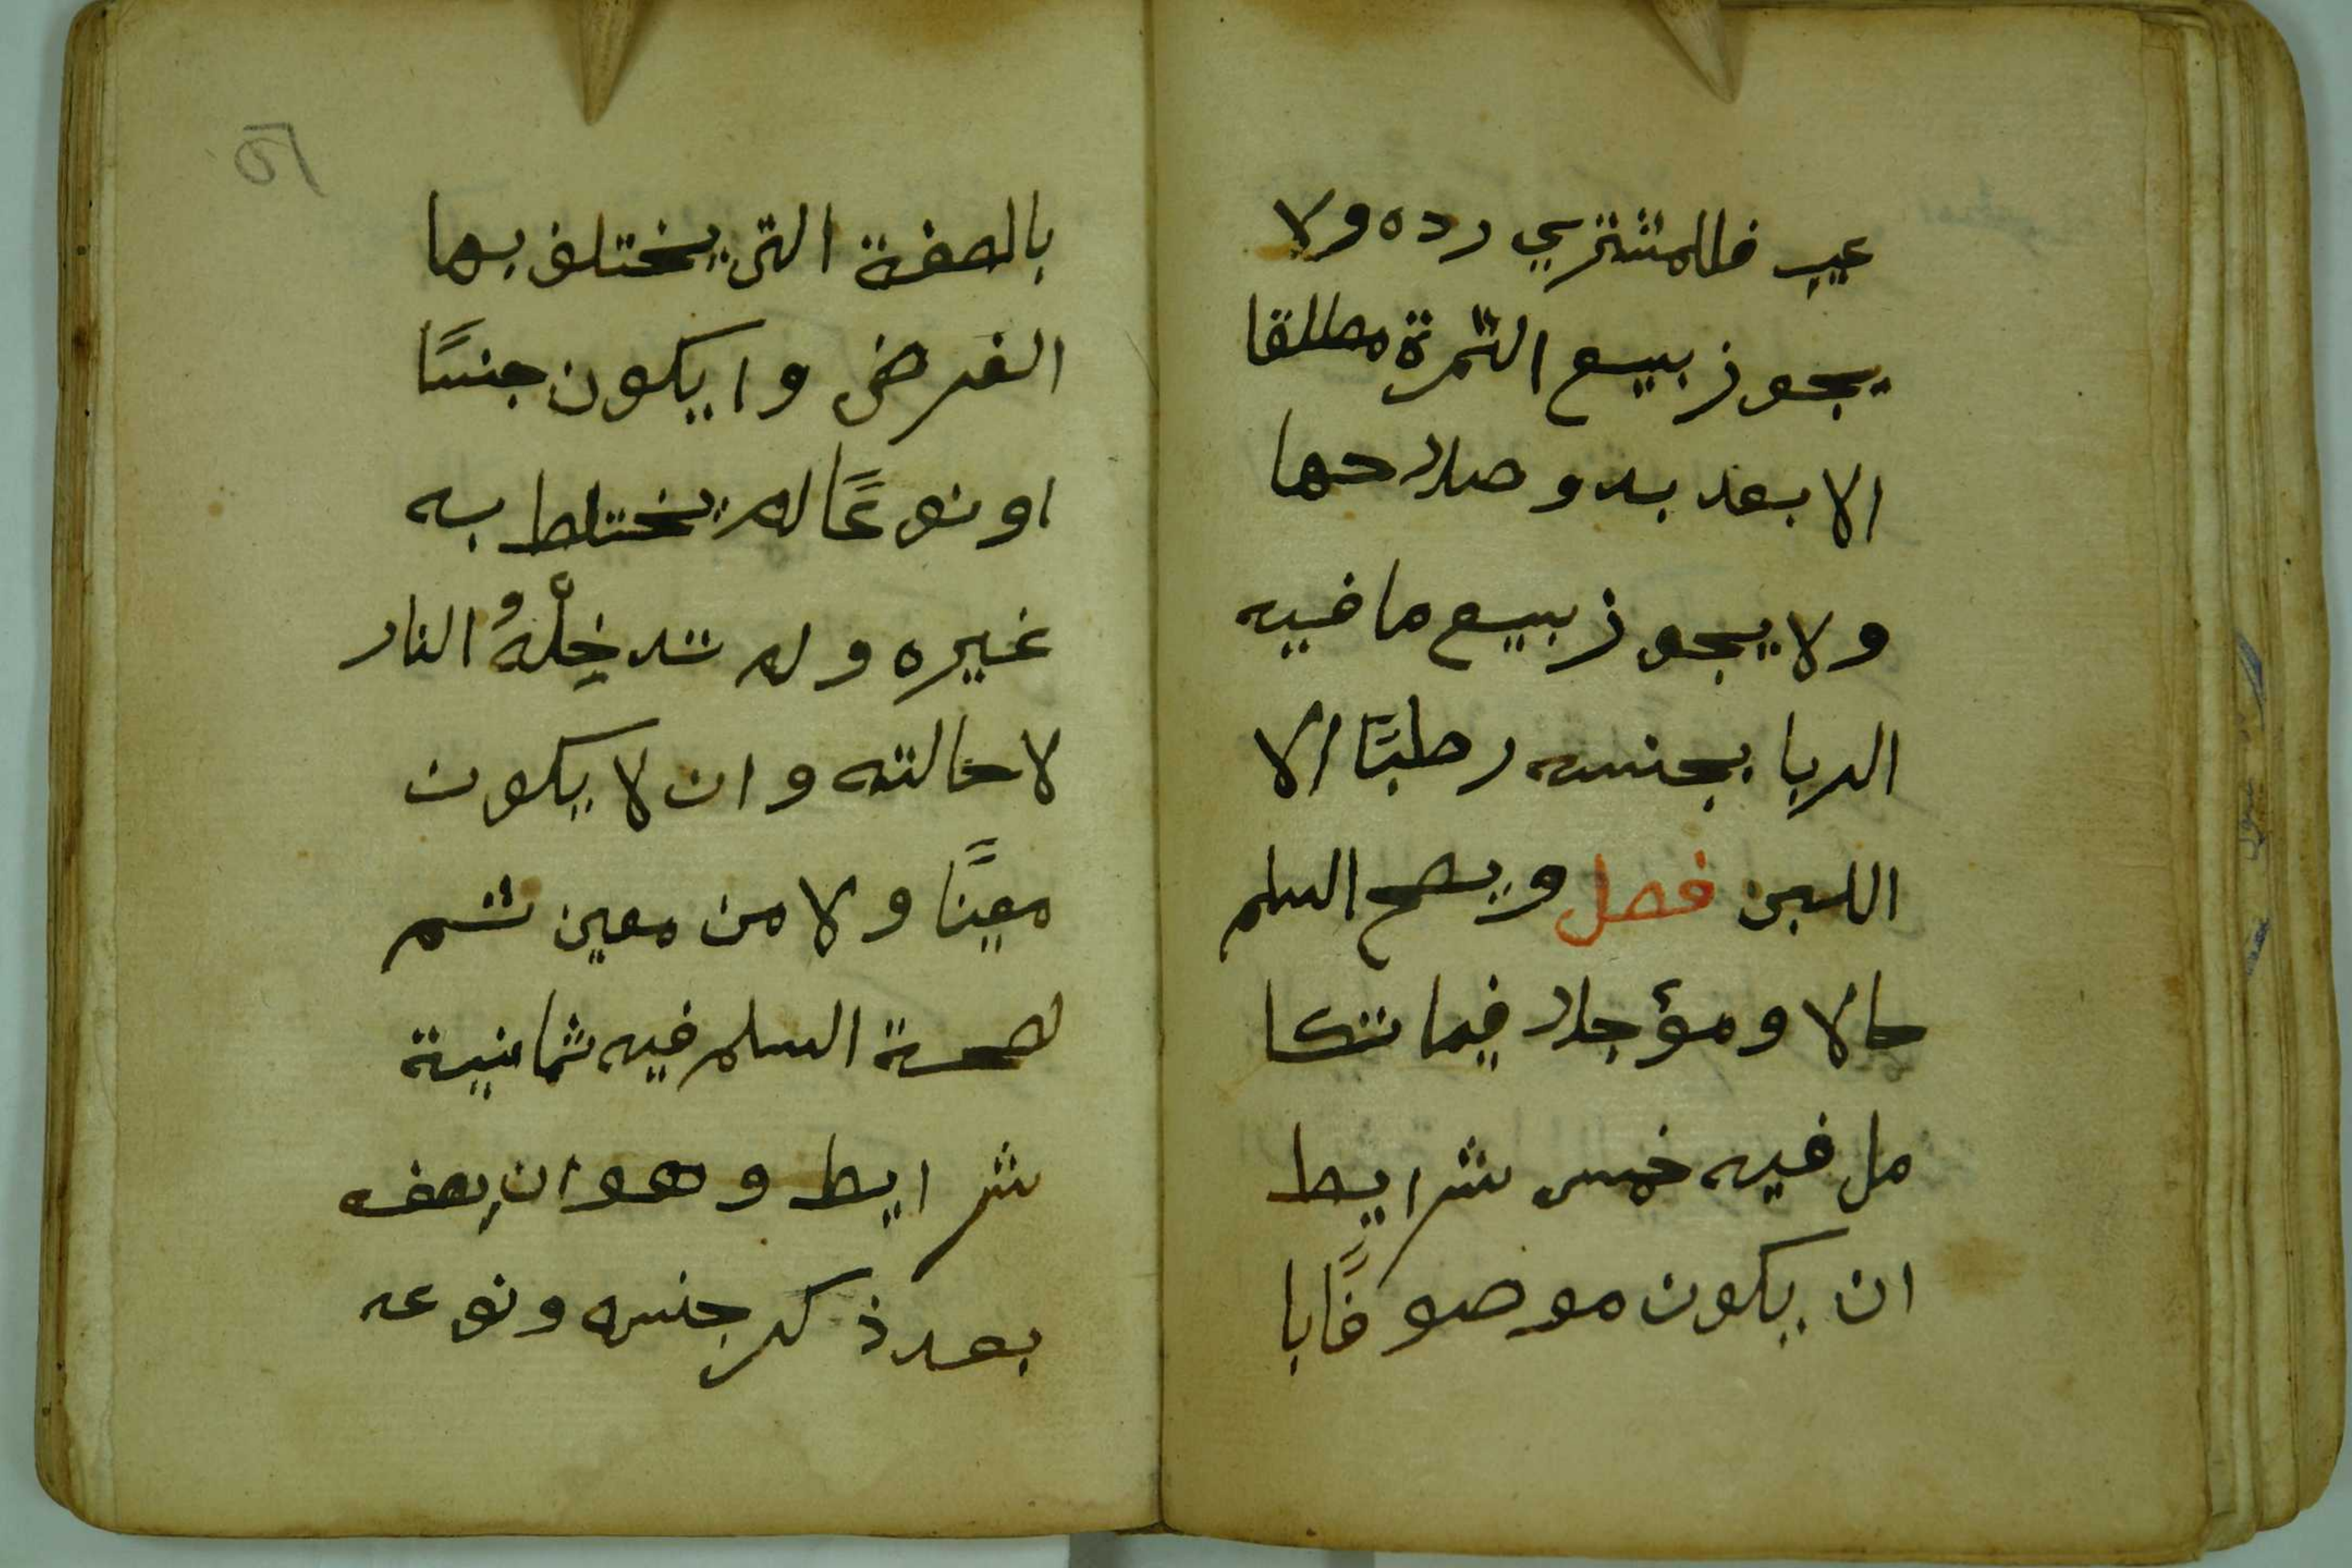 عيب فللمشتري رده ولا
يجوز بيع الثمرة مطلقا
الا بعد بدو صلاحها
ولا يجوز بيع ما فيه
الربا بجنسه رطبًا الا
اللبن فصل ويصح السلم
حالا ومؤجلا فيما تتكا
مل فيه خمس شرايط
ان يكون موصوفًا با
٢٥
بالصفة التي يختلف بها
الغرض وايكون جنسًا
او نوعًا لم يختلط به
غيره ولم تدخِلْهُ النار
لاحالته وان لا يكون
معينًا ولا من معين ثم
لصحة السلم فيه ثمانية
شرايط وهو ان يصفه
بعد ذكر جنسه ونوعه